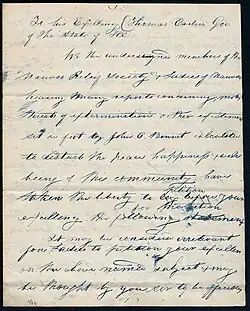 To his Excellency (Thomas Carlin Gov
of the State of Ill
We the undersigned members of the
Nauvoo Relief Society & Ladies of Nauvoo
hearing many reports concerning mobs
threats of extermination & other excitement
set on foot by John C. Bennet calculated
to disturb the peace happiness & well
being of this community have
taken the liberty to
petition
your
excellency the following
It may be considered irrelevant
for Ladies to petition your excellen
on the above named subject & may
be thought by you, sir to be officious